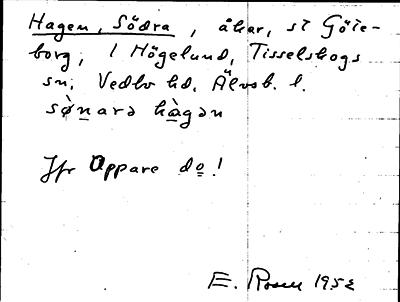 Hagen, Södra, åker, st Göte-
borg, 1 Högelund, Tisselskogs
sn, Vedbo hd. Älvsb. l.
sø̀narə hàgən
Jfr Oppare do!
E. Rosell 1952